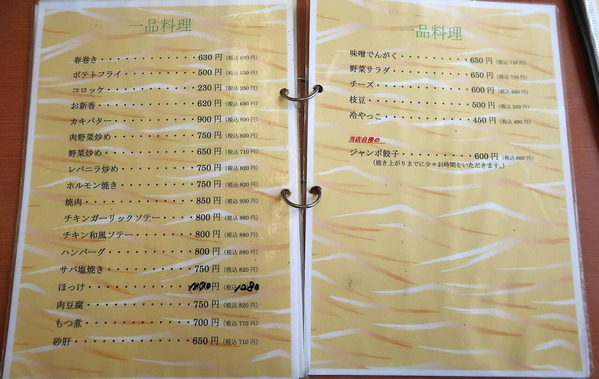 一品料理
春巻き・・・・・・・・・・・・630円(税込690円)
ポテトフライ・・・・・・・・・500円(税込550円)
コロッケ・・・・・・・・・・・230円(税込250円)
お新香・・・・・・・・・・・・620円(税込680円)
カキバター・・・・・・・・・・900円(税込990円)
肉野菜炒め・・・・・・・・・・750円(税込820円)
野菜炒め・・・・・・・・・・・650円(税込710円)
レバニラ炒め・・・・・・・・・750円(税込820円)
ホルモン焼き・・・・・・・・・750円(税込820円)
焼肉・・・・・・・・・・・・・850円(税込930円)
チキンガーリックソテー・・・・800円(税込880円)
チキン和風ソテー・・・・・・・800円(税込880円)
ハンバーグ・・・・・・・・・・800円(税込880円)
サバ塩焼き・・・・・・・・・・750円(税込820円)
ほっけ・・・・・・・・・・・・円(税込1280
肉豆腐・・・・・・・・・・・・750円(税込820円)
もつ煮・・・・・・・・・・・・700円(税込770円)
砂肝・・・・・・・・・・・・・650円(税込710円)
一品料理
味噌でんがく・・・・・・・・・650円(税込710円)
野菜サラダ・・・・・・・・・・650円(税込710円)
チーズ・・・・・・・・・・・・600円(税込660円)
枝豆・・・・・・・・・・・・・500円(税込550円)
冷やっこ・・・・・・・・・・・450円(税込490円)
当店自慢の
ジャンボ餃子・・・・・・・・・600円(税込660円)
(焼き上がりまでに少々お時間をいただきます。)